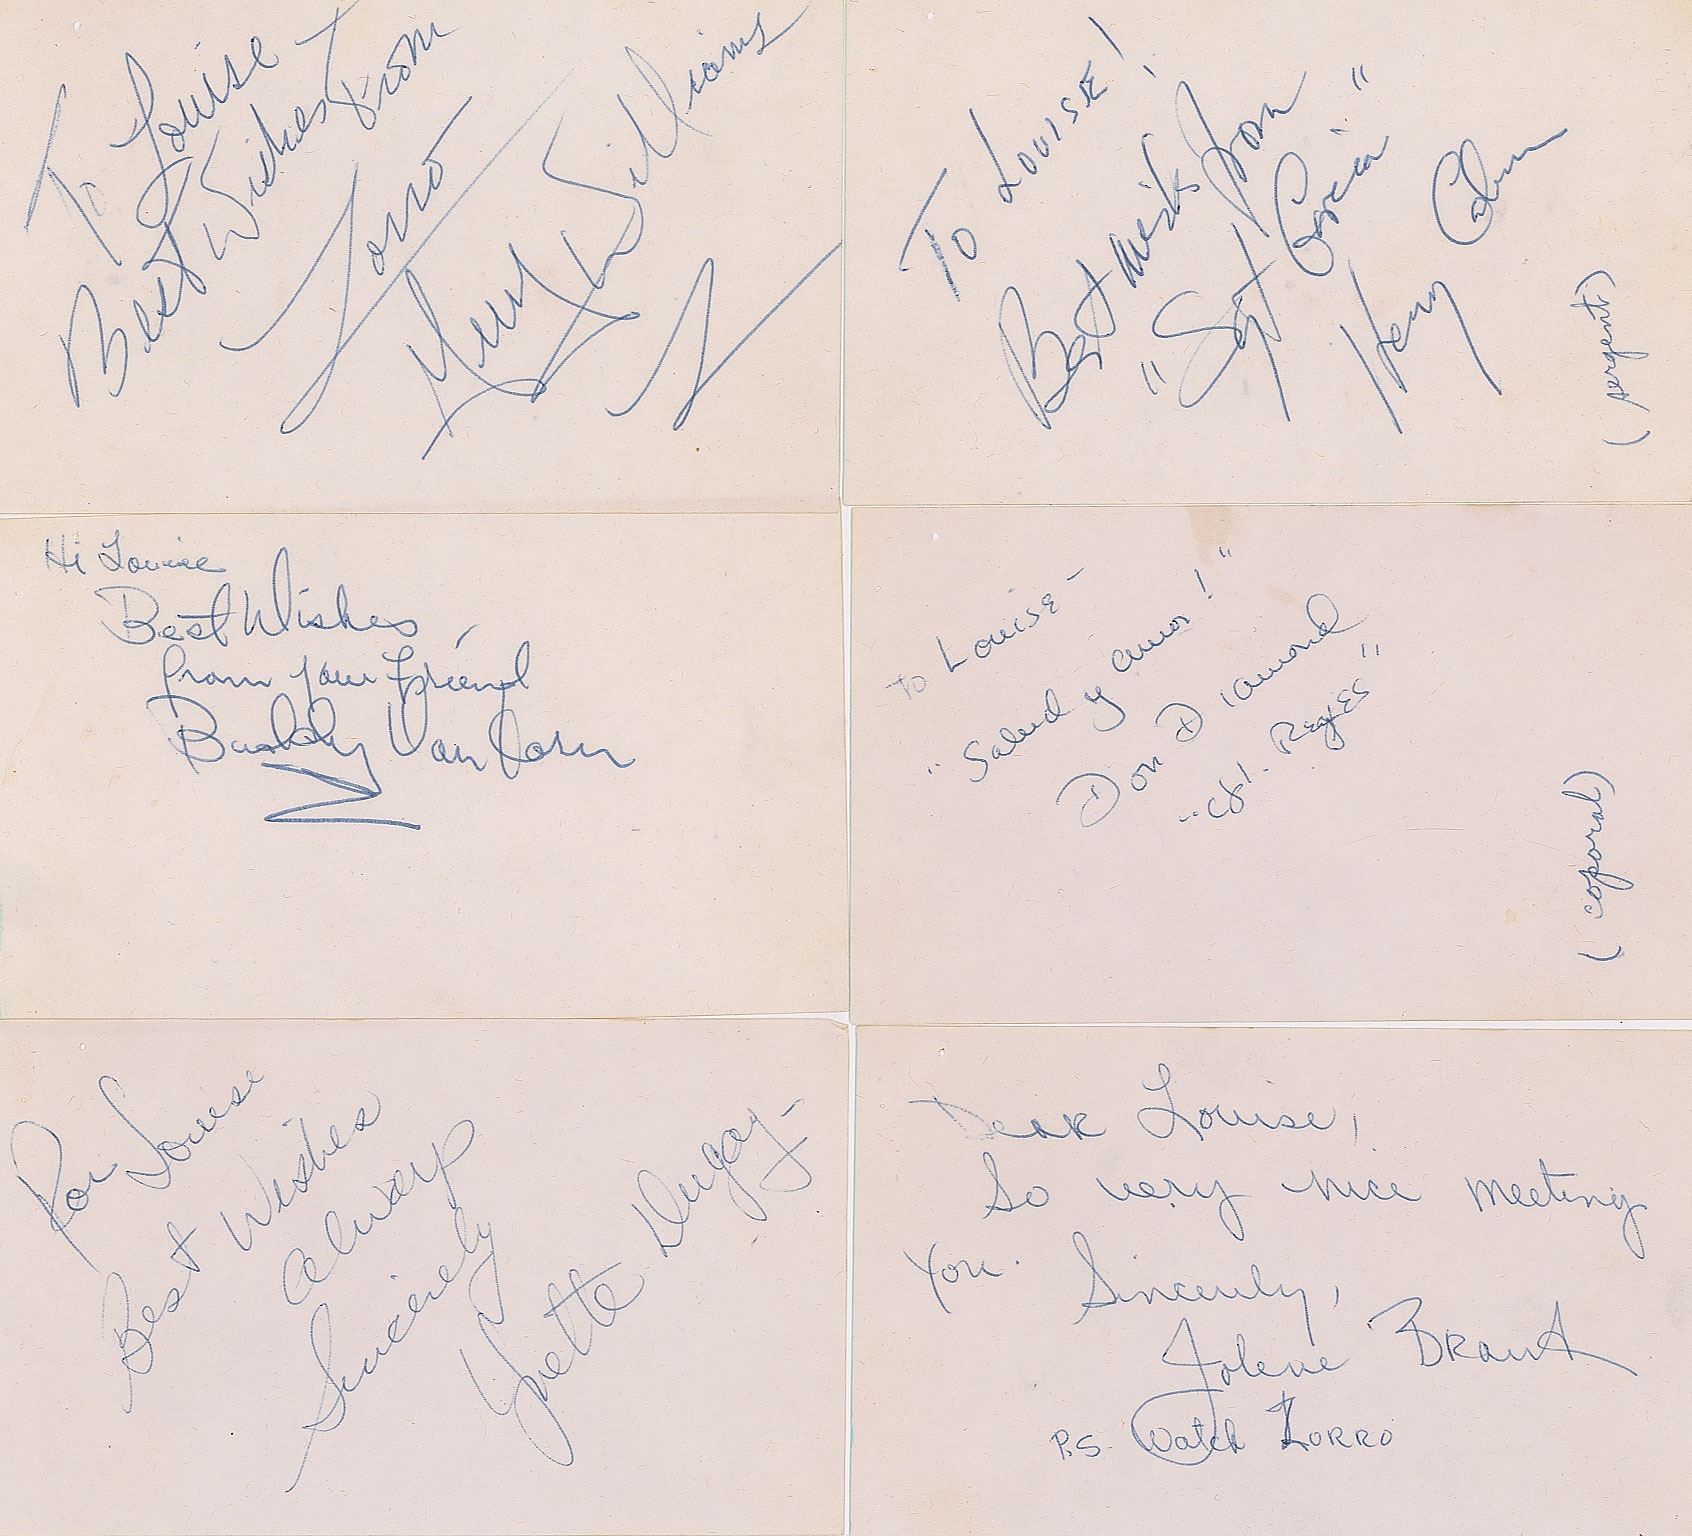 To Louise -
Best Wishes From
Zorro
Guy Williams
Z
To Louise!
Best Wishes from
"Sgt Garcia"
Henry Calvin
(sergent)
Hi Louise
Best Wishes
from your friend
Buddy Van Horn
To Louise -
"Salud y amor!"
Don Diamond
"Cpl. Reyes"
(coporal)
For Louise
Best Wishes
always
Sincerely
Yvette Dugay -
Dear Louise,
So very nice meeting
you. Sincerely,
Jolene Brand
P.S. Watch Zorro